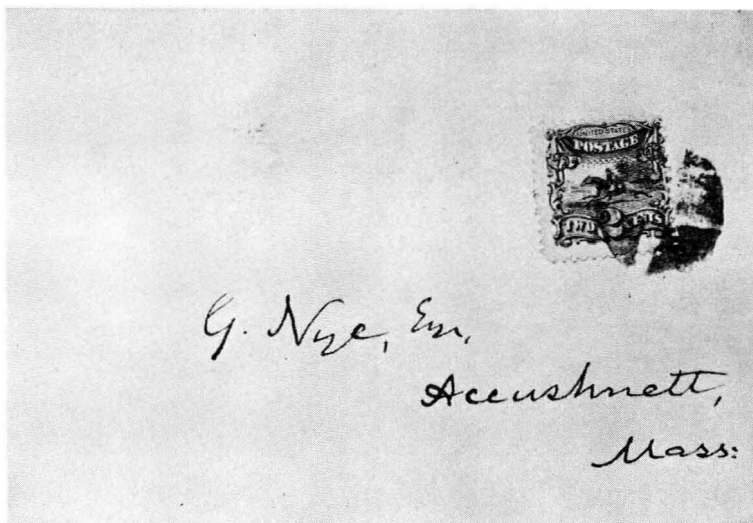 UNITED STATES
POSTAGE
TWO 2 CENTS
G. Nye, Esq,
Accushnett,
Mass: